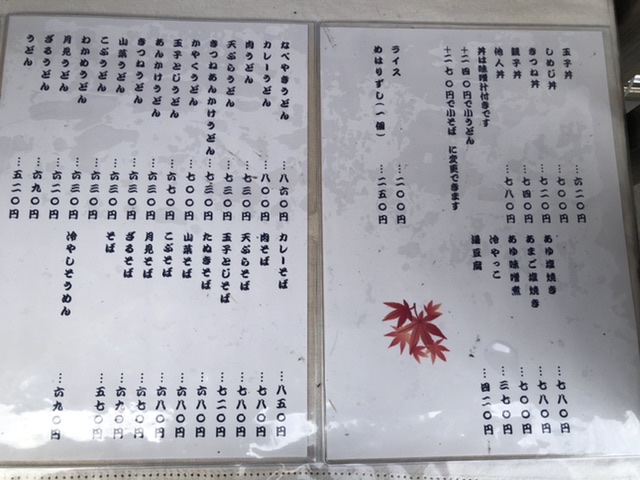 玉子丼 …六二〇円
しめじ丼 …七〇〇円
きつね丼 …七二〇円
親子丼 …七四〇円
他人丼 …七八〇円
丼は味噌汁付きです
十二四〇円で小うどん
十二七〇円で小そば に変更できます
ライス …二〇〇円
めはりずし(一個) …二五〇円
あゆ塩焼き …七八〇円
あまご塩焼き …七八〇円
あゆ味噌煮 …七〇〇円
冷やっこ …三七〇円
湯豆腐 …四二〇円
なべやきうどん …八六〇円
カレーうどん …八〇〇円
肉うどん …七三〇円
天ぷらうどん …七三〇円
きつねあんかけうどん …七三〇円
かやくうどん …七〇〇円
玉子とじうどん …六七〇円
あんかけうどん …六三〇円
きつねうどん …六三〇円
山菜うどん …六三〇円
こぶうどん …六三〇円
わかめうどん …六三〇円
月見うどん …六二〇円
ざるうどん …六九〇円
うどん …五二〇円
カレーそば …八五〇円
肉そば …七八〇円
天ぷらそば …七八〇円
玉子とじそば …七二〇円
たぬきそば …六八〇円
山菜そば …六八〇円
こぶそば …六八〇円
月見そば …六七〇円
ざるそば …六九〇円
そば …五七〇円
冷やしそうめん …六九〇円